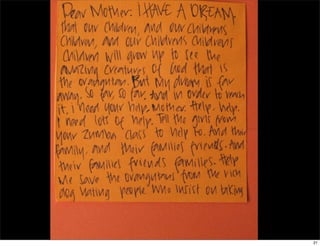 Dear Mother: I HAVE A DREAM,
that our children, and our childrens
children, and our childrens childrens
children will grow up to see the
amazing creatures of God that is
the orangutan. But my dream is far
away. So far, so far. And in order to reach
it, i need your help. Mother. Help. Help.
I need lots of help. Tell the girls from
your Zumba class to help to. And their
family, and their families friends. And
their families friends families. Help
me save the orangutans from the rich
dog hating people who insist on taking